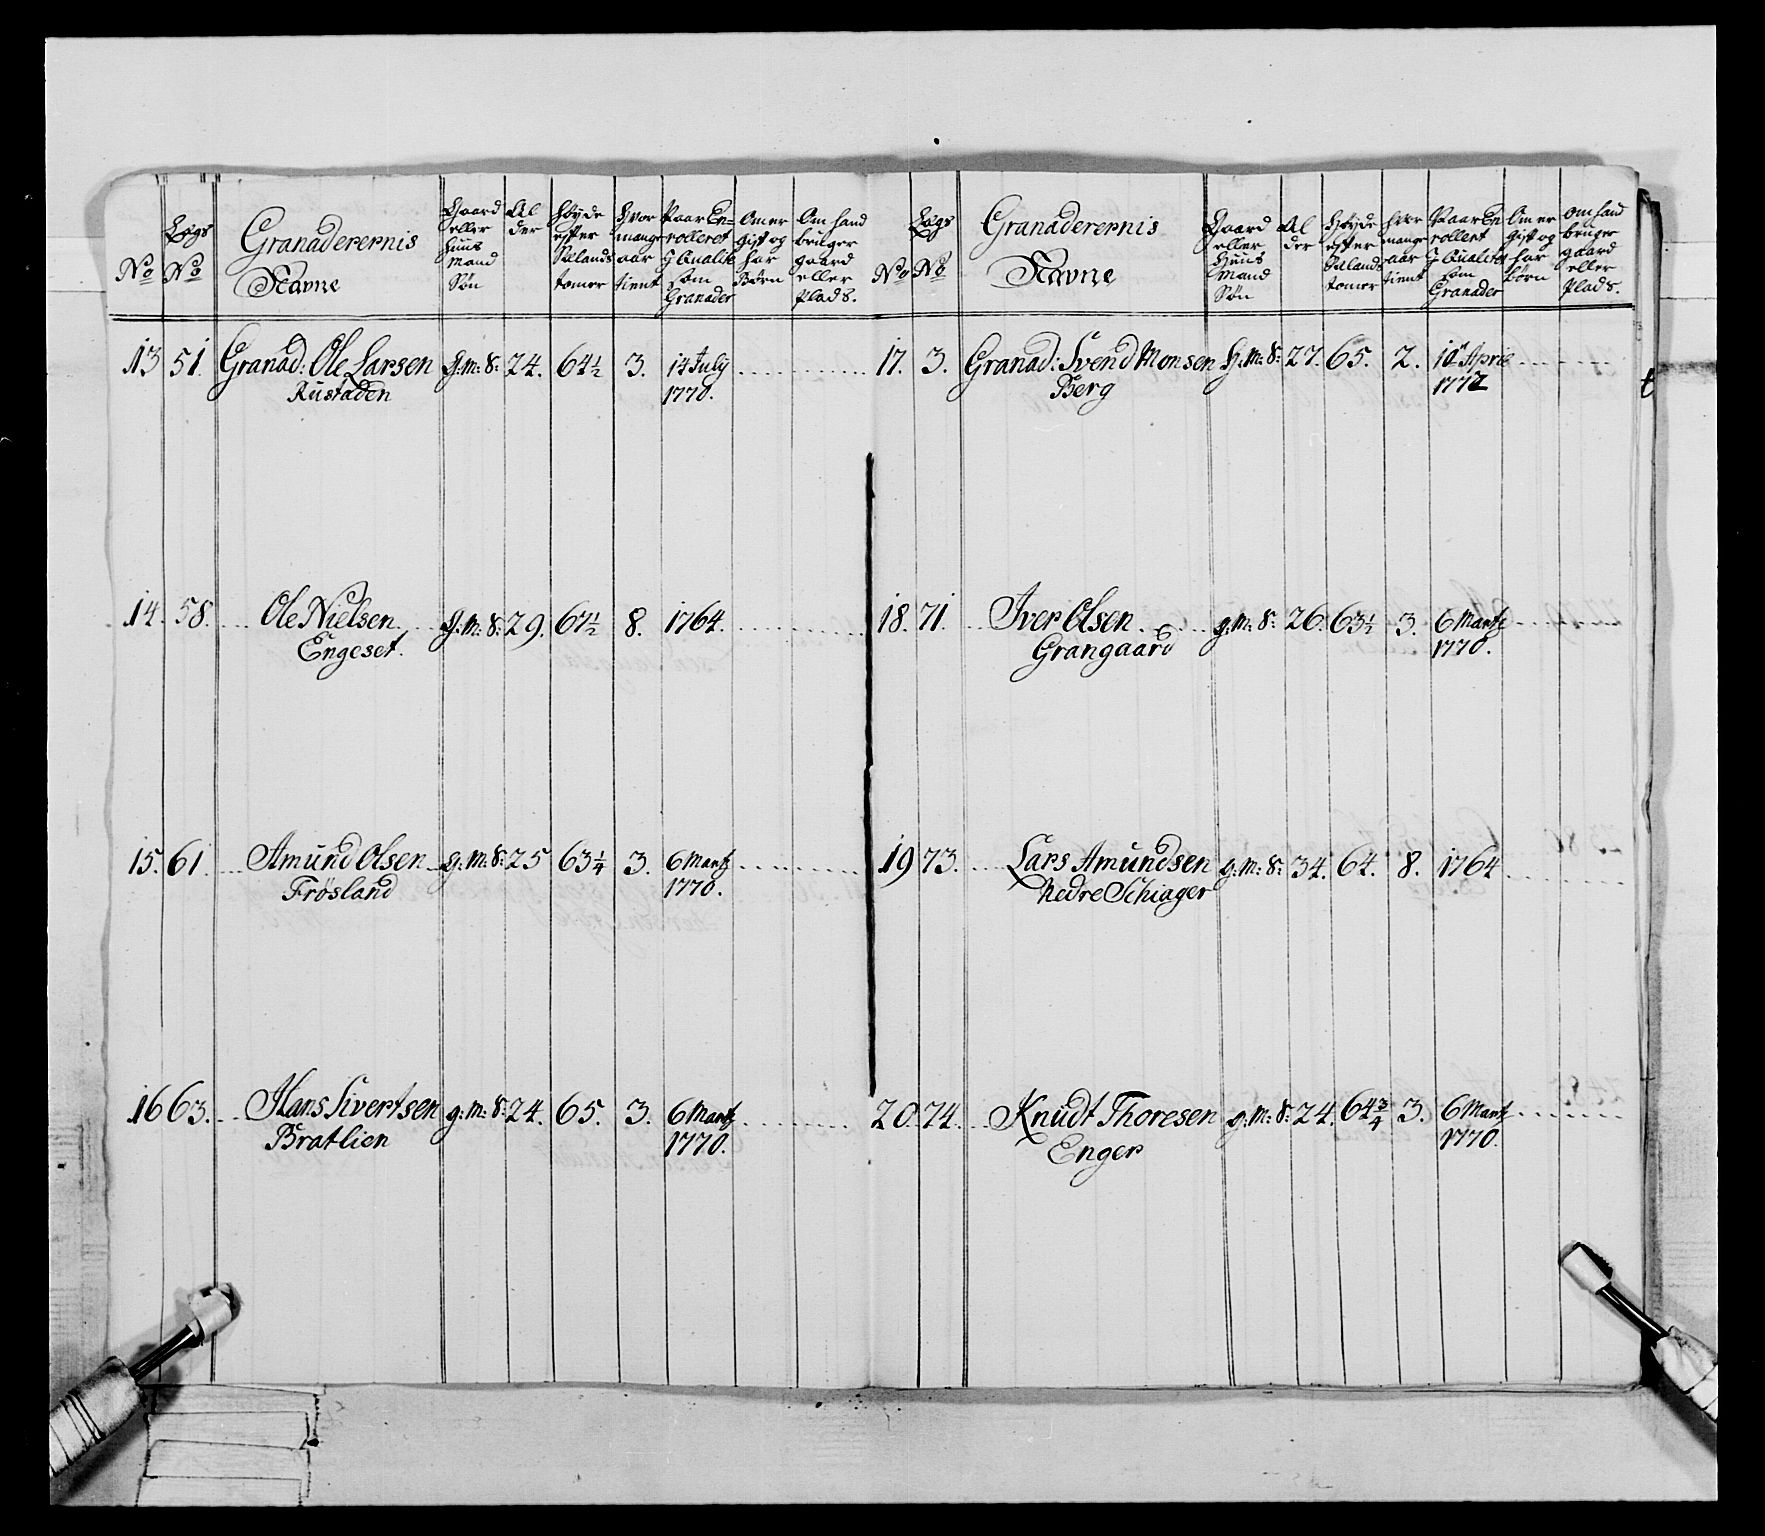 No
Lægs No
Granaderernis Navne
Gaard eller Huus Mand Søn
Al der
Høyde efter Sælands tomer
Hvor mange aar tient
Naar En= rolleret I Qualite som Granader
Om er Gift og har Børn
Om hand bruger gaard eller Plads.
13 51. Granad: Ole Larsen g: m: S: 24. 64½ 3. 14 July
Rustaden 1770.
14. 58. Ole Nielsen g: m: S: 29. 67½ 8. 1764.
Engeset.
15. 61. Amund Olsen g: m: S: 25 63¼ 3. 6 Martz
Frøsland 1770.
16 63. Hans Sivertsen g: m: S: 24. 65. 3. 6 Martz
Bratlien 1770.
No
Lægs No
Granaderernis Navne
Gaard eller Huus Mand Søn
Al der
Høyde efter Sælands tomer
hvor mange aar tient
Naar En rollert I Qualitet som Granader
Om er Gift og har børn
om hand bruger gaard eller Plads.
17. 3. Granad: Svend Monsen H: m: S: 27. 65. 2. April
Berg 1772
18. 71. Iver Olsen g: m: S: 26. 63½ 3. 6 Martz
Grangaard 1770.
19 73. Lars Amundsen g: m: S: 34. 64. 8. 1764
Nedre Schiager
20. 74. Knudt Thoresen g: m: S: 24. 64¾ 3. 6 Martz
Enger 1770.